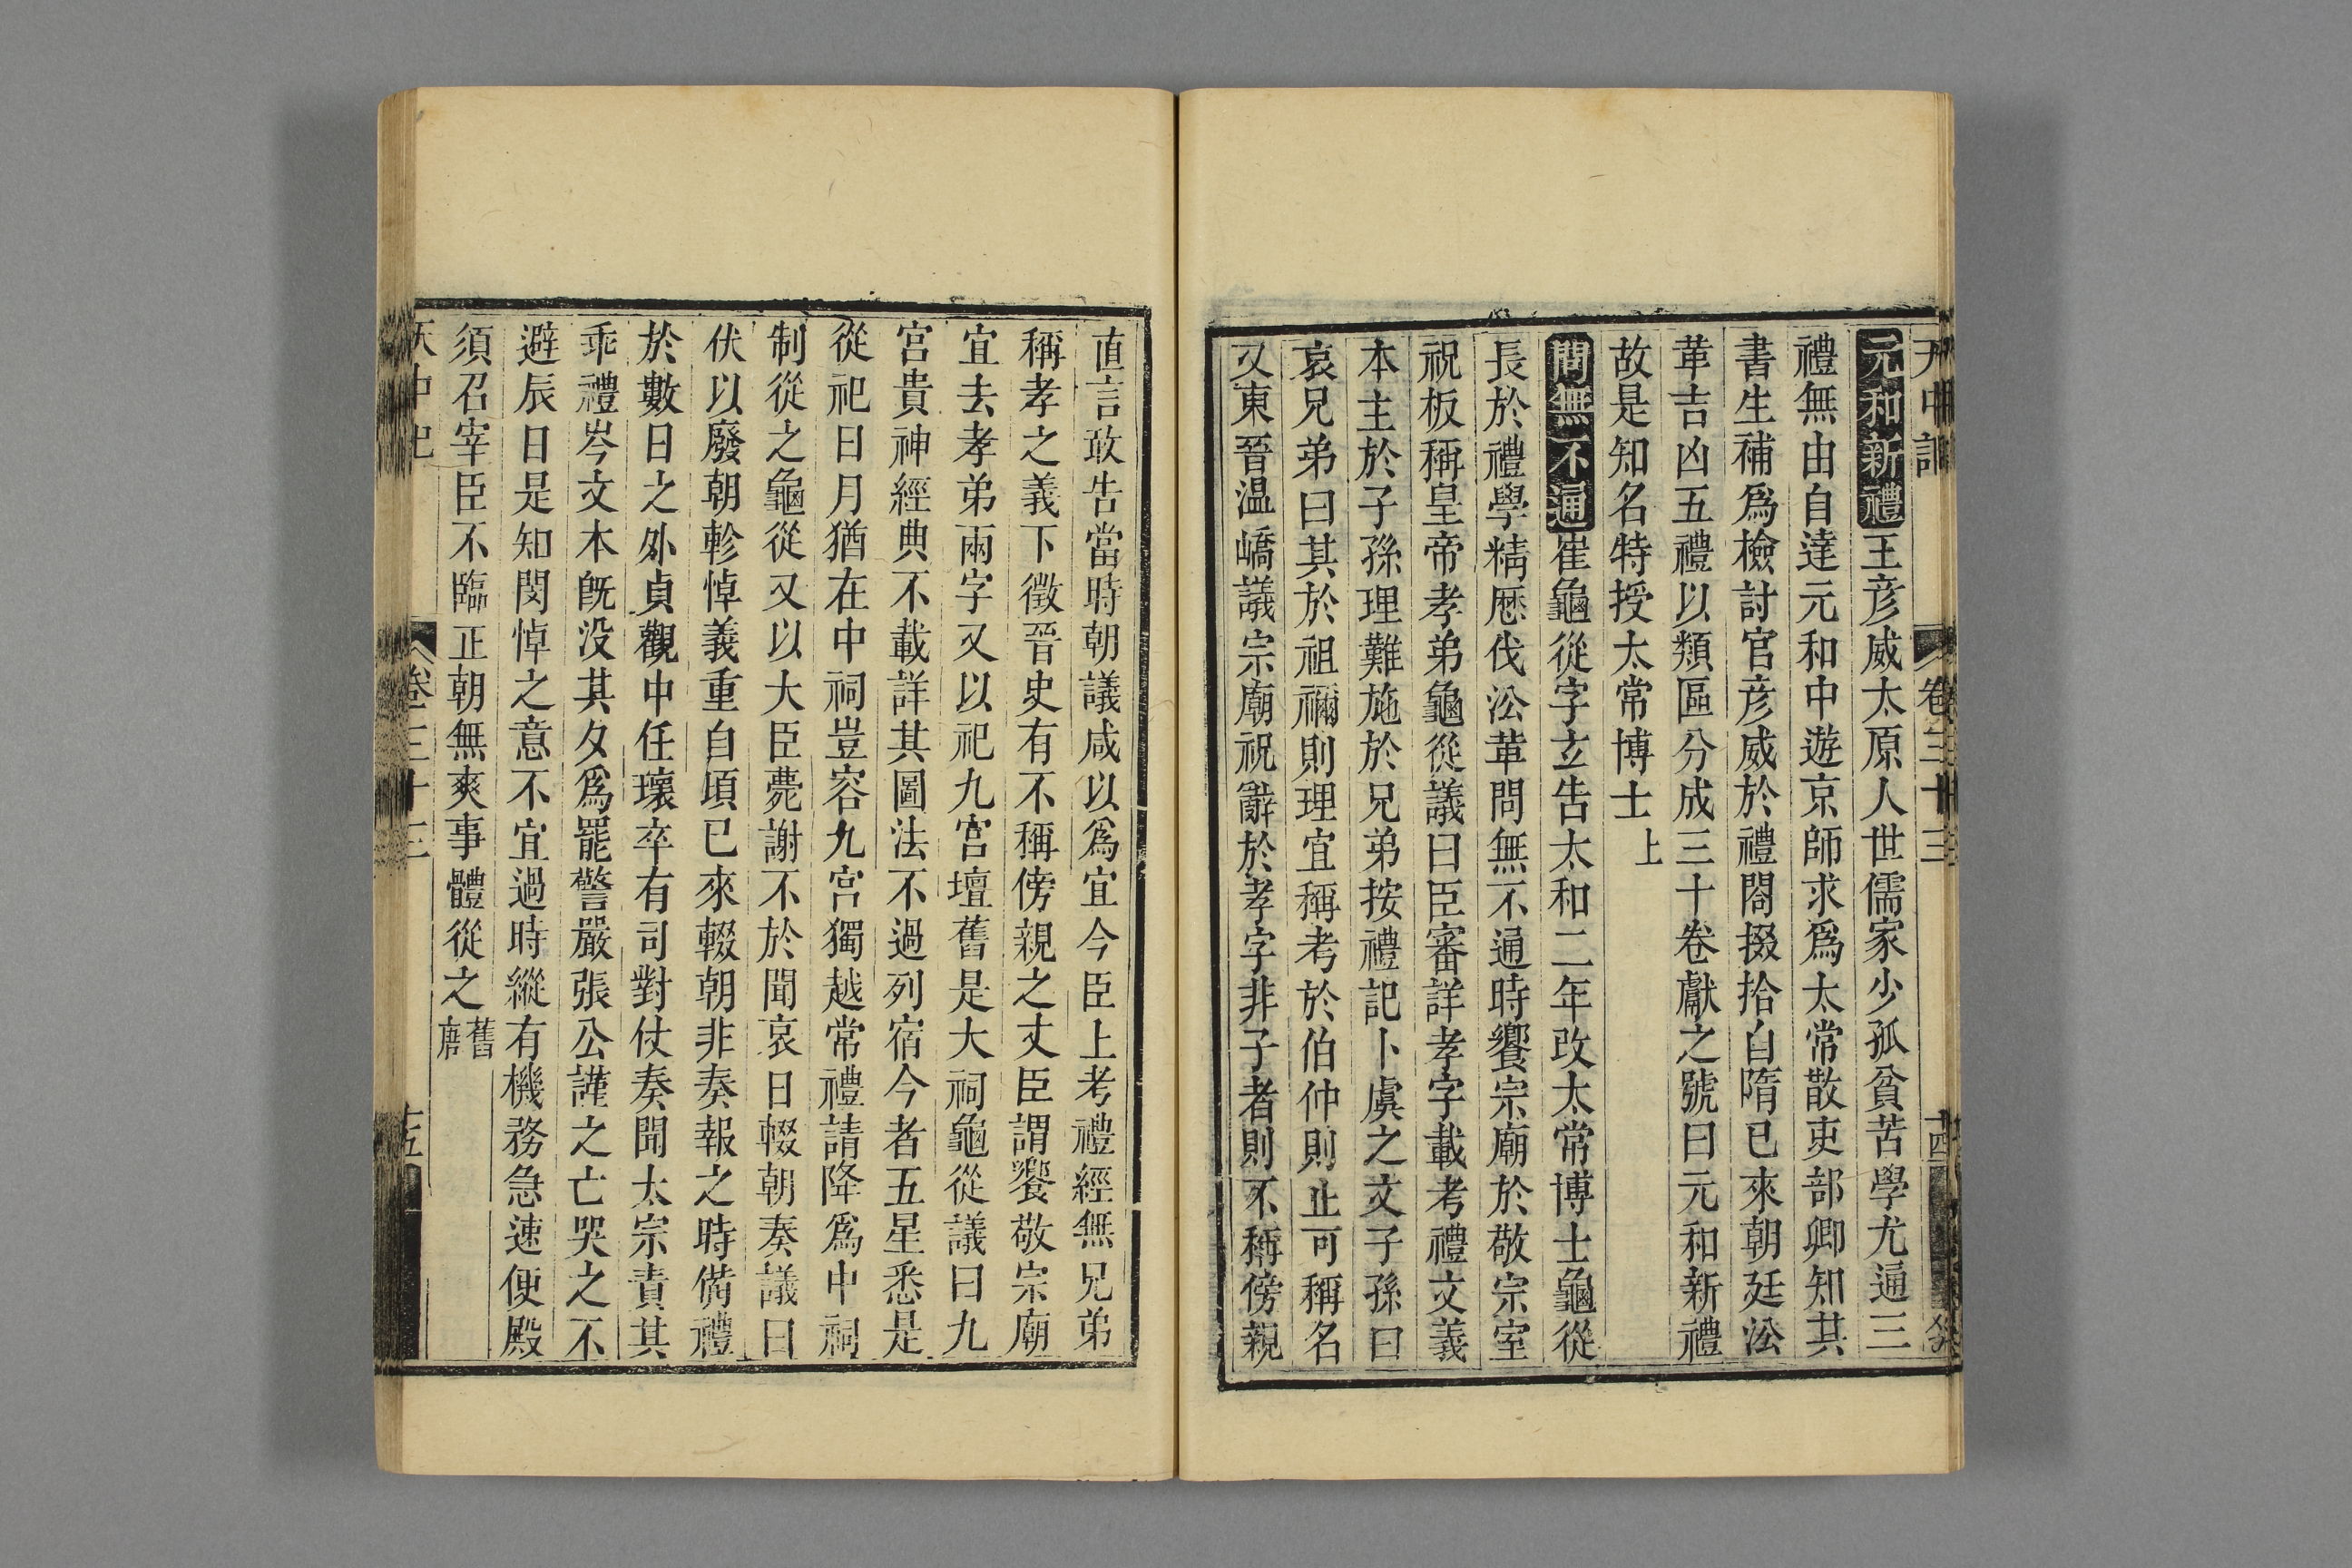 天中記 卷三十三 十四
元和新禮王彥威太原人世儒家少孤貧苦學尤通三
禮無由自達元和中遊京師求爲太常散吏部卿知其
書生補爲檢討官彥威於禮閣掇拾自隋已來朝廷㳂
革吉凶五禮以類區分成三十卷獻之號曰元和新禮
故是知名特授太常博士上
問無不通崔龜從字玄告太和二年改太常博士龜從
長於禮學精歷代㳂革問無不通時饗宗廟於敬宗室
祝板稱皇帝孝弟龜從議曰臣審詳孝字載考禮文義
本主於子孫理難施於兄弟按禮記卜虞之文子孫曰
哀兄弟曰其於祖禰則理宜稱考於伯仲則止可稱名
又東晉溫嶠議宗廟祝辭於孝字非子者則不稱傍親
直言敢告當時朝議咸以爲宜今臣上考禮經無兄弟
稱孝之義下徵晉史有不稱傍親之文臣謂饗敬宗廟
宜去孝弟兩字又以祀九宮壇舊是大祠龜從議曰九
宮貴神經典不載詳其圖法不過列宿今者五星悉是
從祀日月猶在中祠豈容九宮獨越常禮請降爲中祠
制從之龜從又以大臣薨謝不於聞哀日輟朝奏議曰
伏以廢朝軫悼義重自頃已來輟朝非奏報之時備禮
於數日之外貞觀中任瓌卒有司對仗奏聞太宗責其
乖禮岑文本旣没其夕爲罷警嚴張公謹之亡哭之不
避辰日是知閔悼之意不宜過時縱有機務急速便殿
須召宰臣不臨正朝無爽事體從之舊唐
天中記 卷三十三 十五